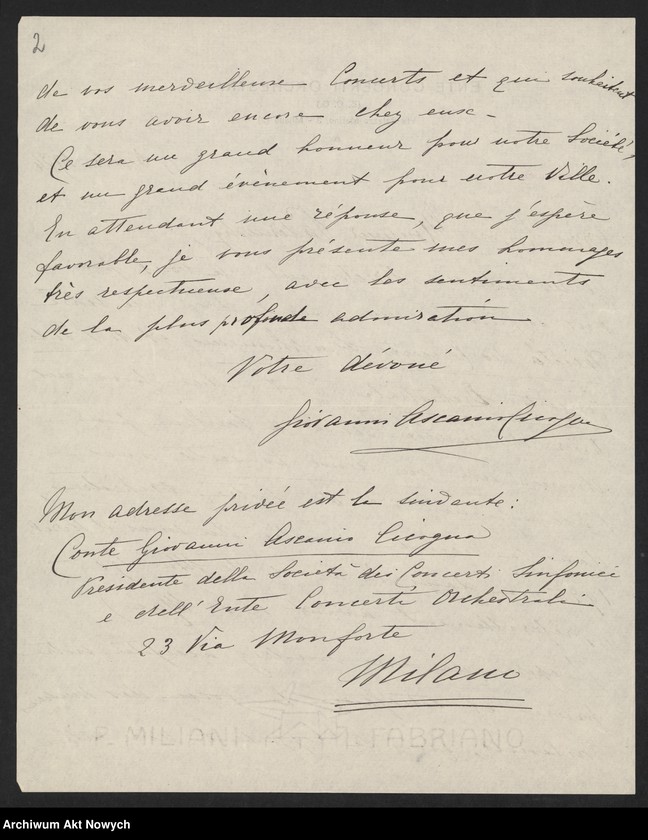 2
de vos merveilleuse Concerts et qui souhaitent
de vous avoir encore chez eux -
Ce sera un grand honneur pour notre Société,
et un grand évènement pour notre Ville.
En attendant une réponse, que j'espère
favorable, je vous présente mes hommages
très respectueuse, avec les sentiments
de la plus profonde admiration.
Votre dévoué
Giovanni Ascanio Cicogna
Mon adresse privée est la suivante:
Conte Giovanni Ascanio Cicogna
Presidente della Società dei Concerti Sinfonici
e dell'Ente Concerti Orchestrali
23 Via Monforte
Milano
P. MILIANI FABRIANO
Archiwum Akt Nowych